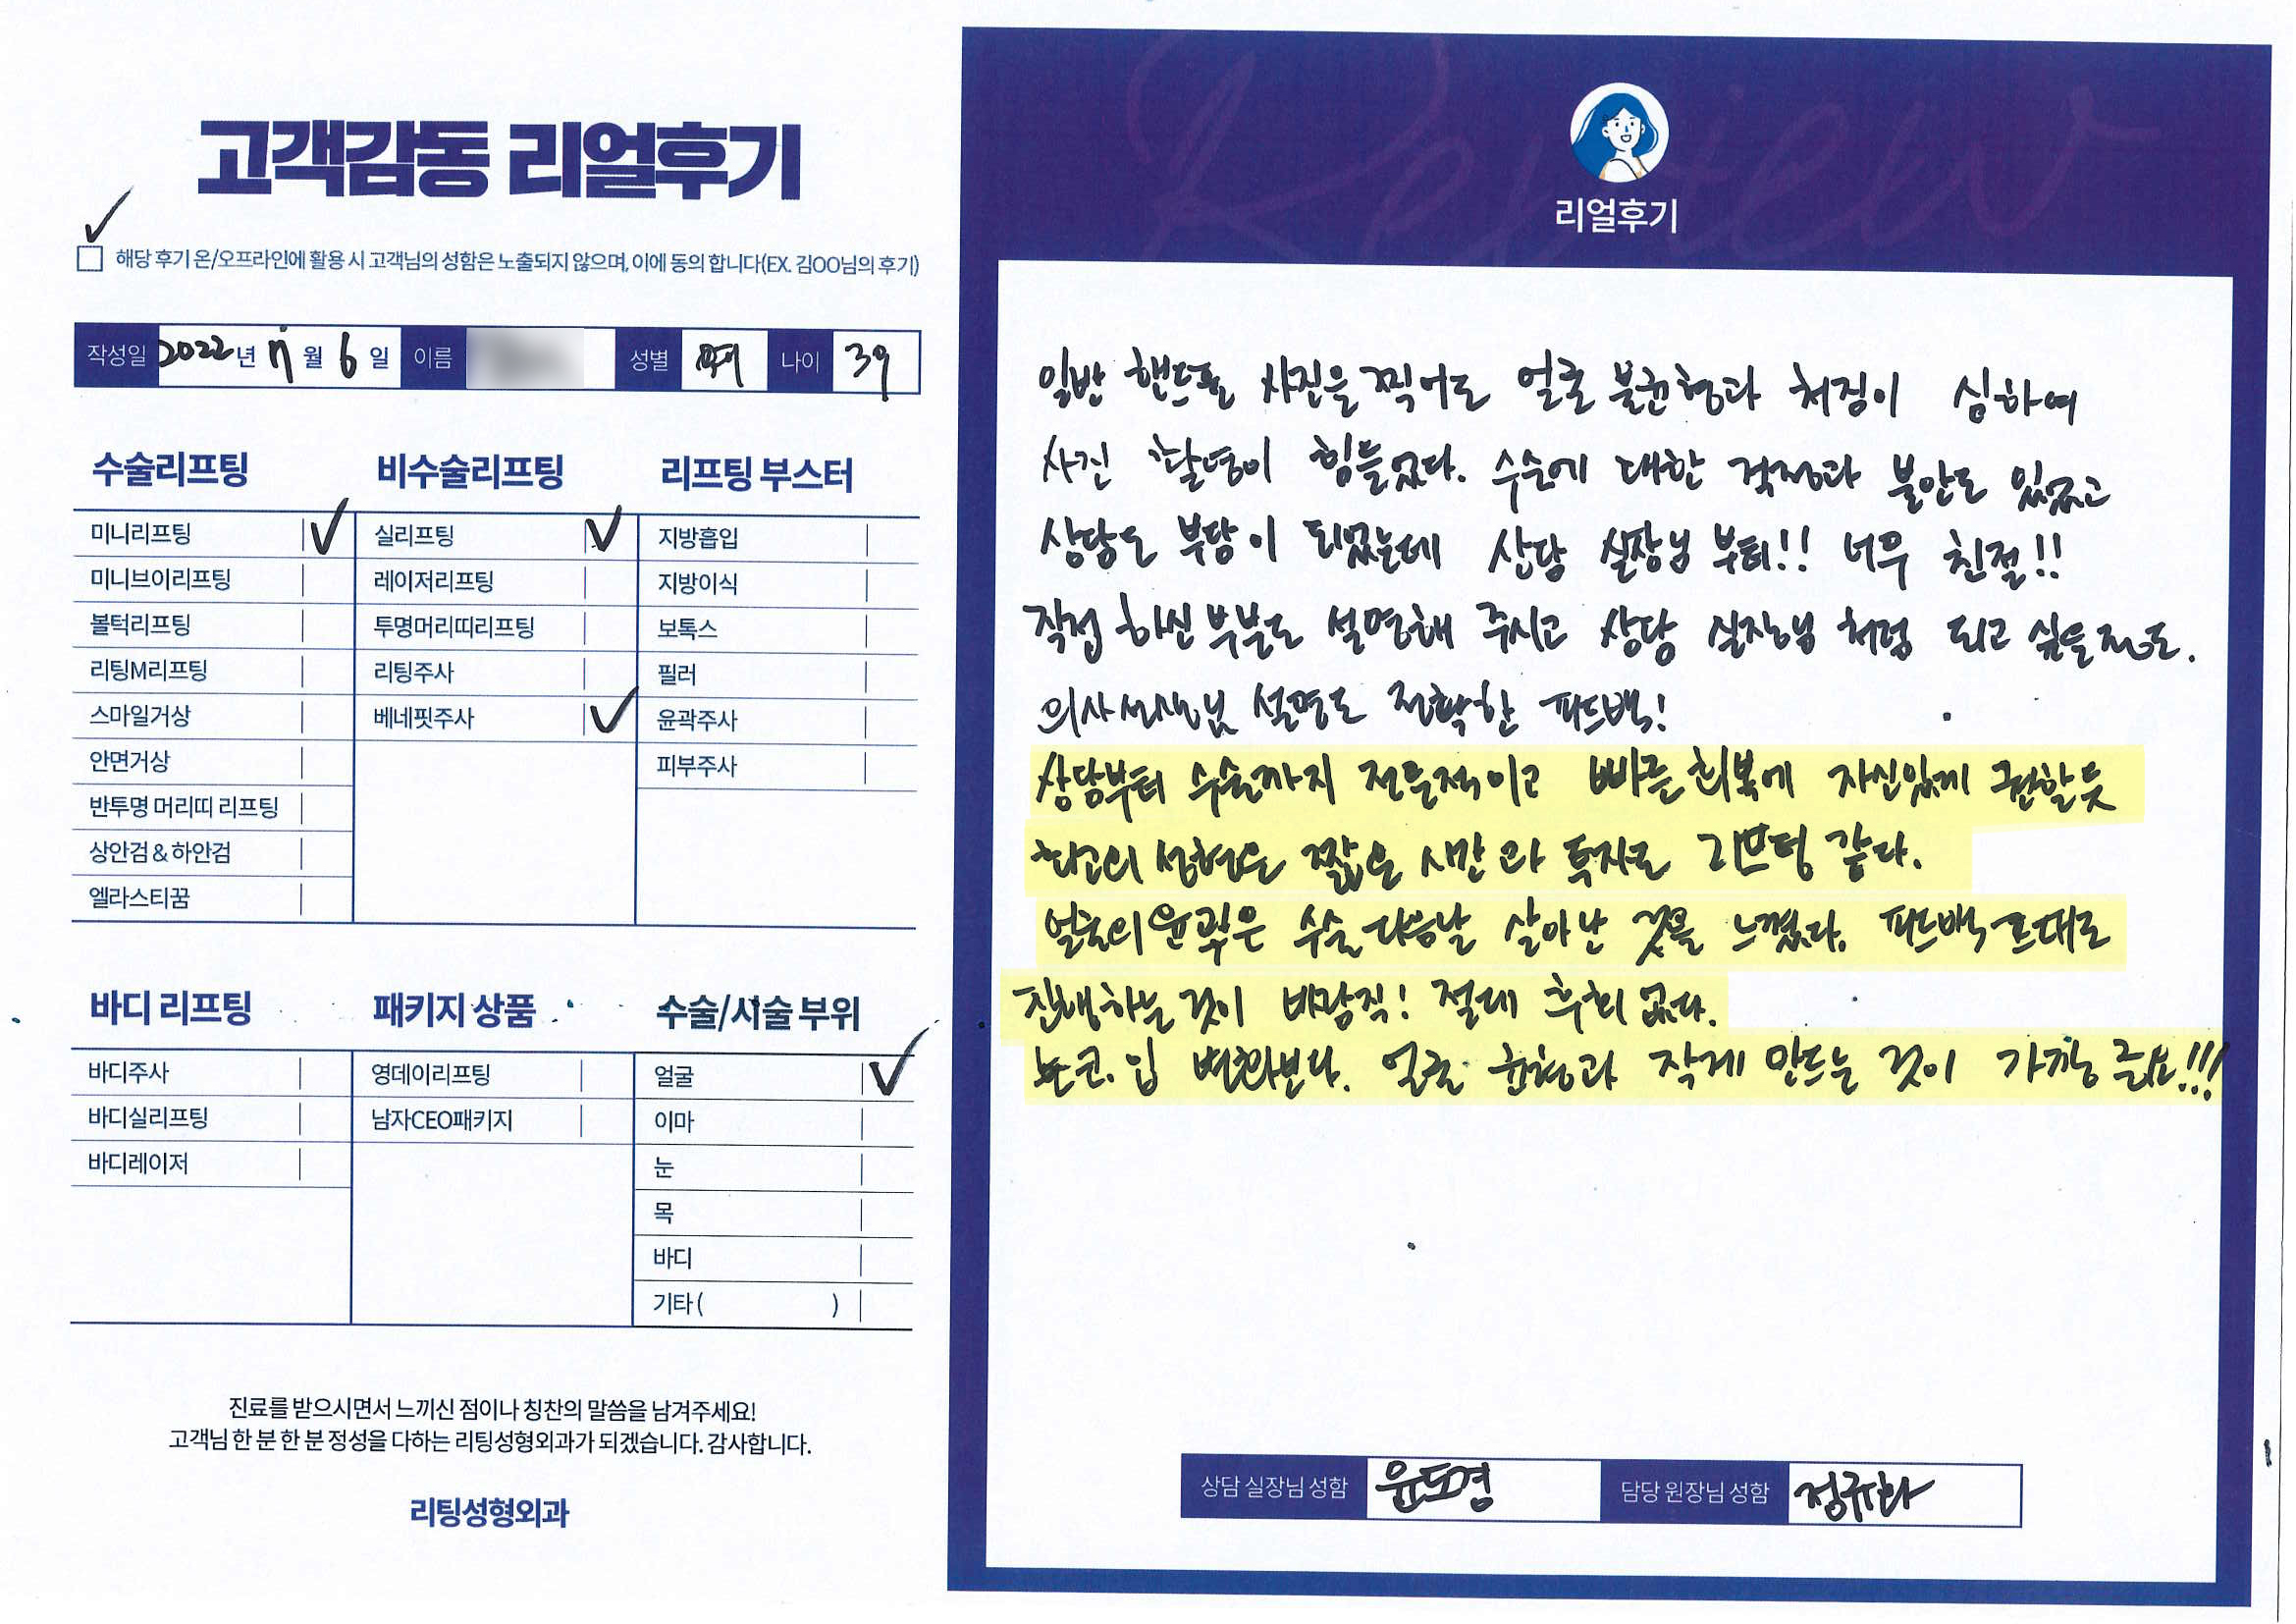 고객감동 리얼후기
해당 후기 온/오프라인에 활용 시 고객님의 성함은 노출되지 않으며, 이에 동의 합니다(EX. 김OO님의 후기)
작성일 2022년 월 6일 이름 성별 나이 39
수술리프팅
미니리프팅
미니브이리프팅
볼턱리프팅
리팅M리프팅
스마일거상
안면거상
반투명 머리띠 리프팅
상안검 & 하안검
엘라스티꿈
비수술리프팅
실리프팅
레이저리프팅
투명머리띠리프팅
리팅주사
베네핏주사
리프팅 부스터
지방흡입
지방이식
보톡스
필러
윤곽주사
피부주사
바디 리프팅
바디주사
바디실리프팅
바디레이저
패키지 상품
영데이리프팅
남자CEO패키지
수술/시술 부위
얼굴
이마
눈
목
바디
기타 ( )
진료를 받으시면서 느끼신 점이나 칭찬의 말씀을 남겨주세요!
고객님 한 분 한 분 정성을 다하는 리팅성형외과가 되겠습니다. 감사합니다.
리팅성형외과
Review
리얼후기
일반 핸드폰 사진을 찍어도 얼굴 불균형과 처짐이 심하여
사진 촬영이 힘들었다. 수술에 대한 걱정과 불안도 있었고
상담도 부담이 되었는데 상담 실장님 부터!! 너무 친절!!
직접 하신 부분도 설명해 주시고 상담 실장님 처럼 되고 싶을 정도.
의사선생님 설명도 정확한 피드백!
상담부터 수술까지 전문적이고 빠른 회복에 자신있게 권할듯
최고의 성형은 짧은 시간과 투자로 리프팅 같다.
얼굴의 윤곽은 수술 다음날 살아난 것을 느꼈다. 피드백 그대로
진행하는 것이 바람직! 절대 후회 없다.
눈.코.입 변화보다. 얼굴 균형과 작게 만드는 것이 가장 중요!!!
상담 실장님 성함 윤도경
담당 원장님 성함 정규화